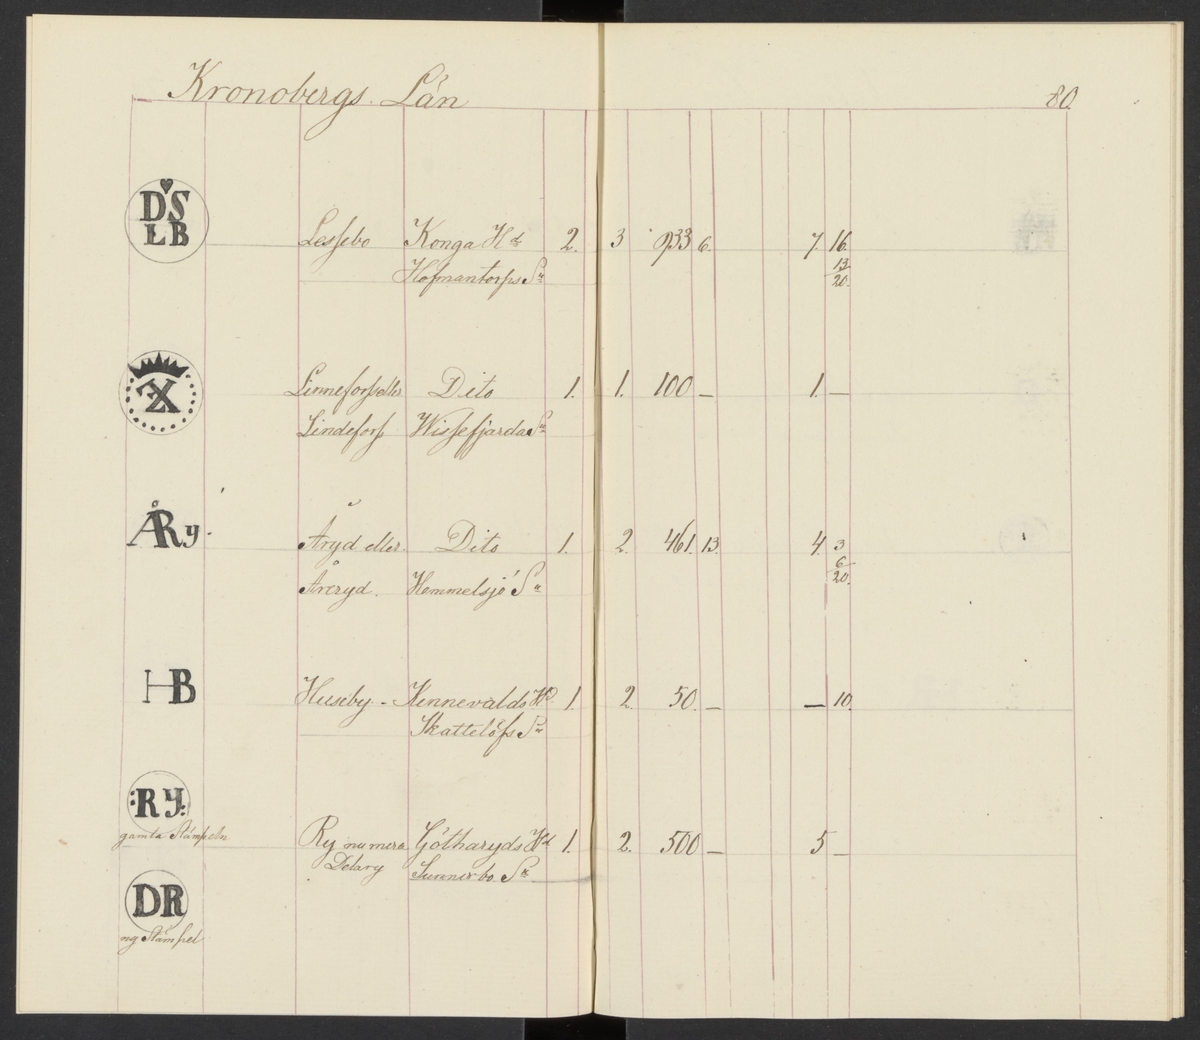 Kronobergs Län
80.
DS
LB
Lessebo Konga Hd 2. 3 933 6. 7. 16.
Hofmantorps Sn 13/20.
Linnefors eller Dito 1. 1. 100 — 1. —
Lindefors Wissefjärda Sn
ÅRy.
Åryd eller Dito 1. 2. 461. 13. 4. 3
Åreryd. Hemmelsjö Sn 6/20.
HB
Huseby - Kennevalds Hd 1 2. 50. — — 10.
Skattelöfs Sn
:RY:
gamla Stämpeln
Ry numera Götharyds Hd 1. 2. 500 — 5 —
Delary Sunnerbo Sn
DR
ny Stämpel